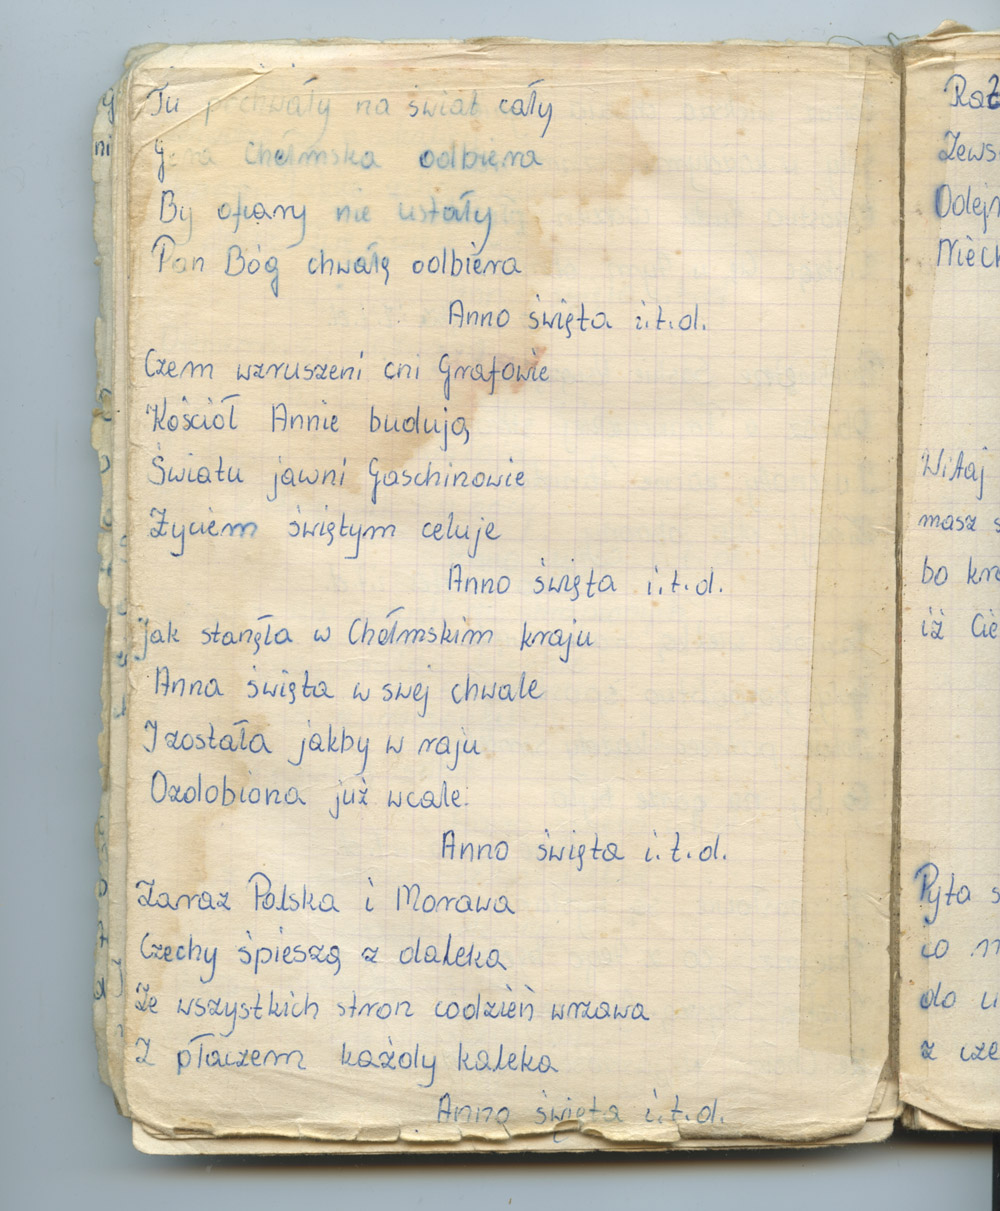 Tu pochwały na świat cały
Góra Chełmska odbiera
By ofiary nie ustały
Pan Bóg chwałę odbiera
Anno święta i.t.d.
Czem wzruszeni cni Grafowie
Kościół Annie budują
Światu jawni Gaschinowie
Życiem świętym celuje
Anno święta i.t.d.
Jak stanęła w Chełmskim kraju
Anna święta w swej chwale
I została jakby w raju
Ozdobiona już wcale.
Anno święta i.t.d.
Zaraz Polska i Morawa
Czechy śpieszą z daleka
Ze wszystkich stron codzień wrzawa
Z płaczem każdy kaleka
Anno święta i.t.d.
Witaj
masz
bo
iż
Pyta
co
do
z